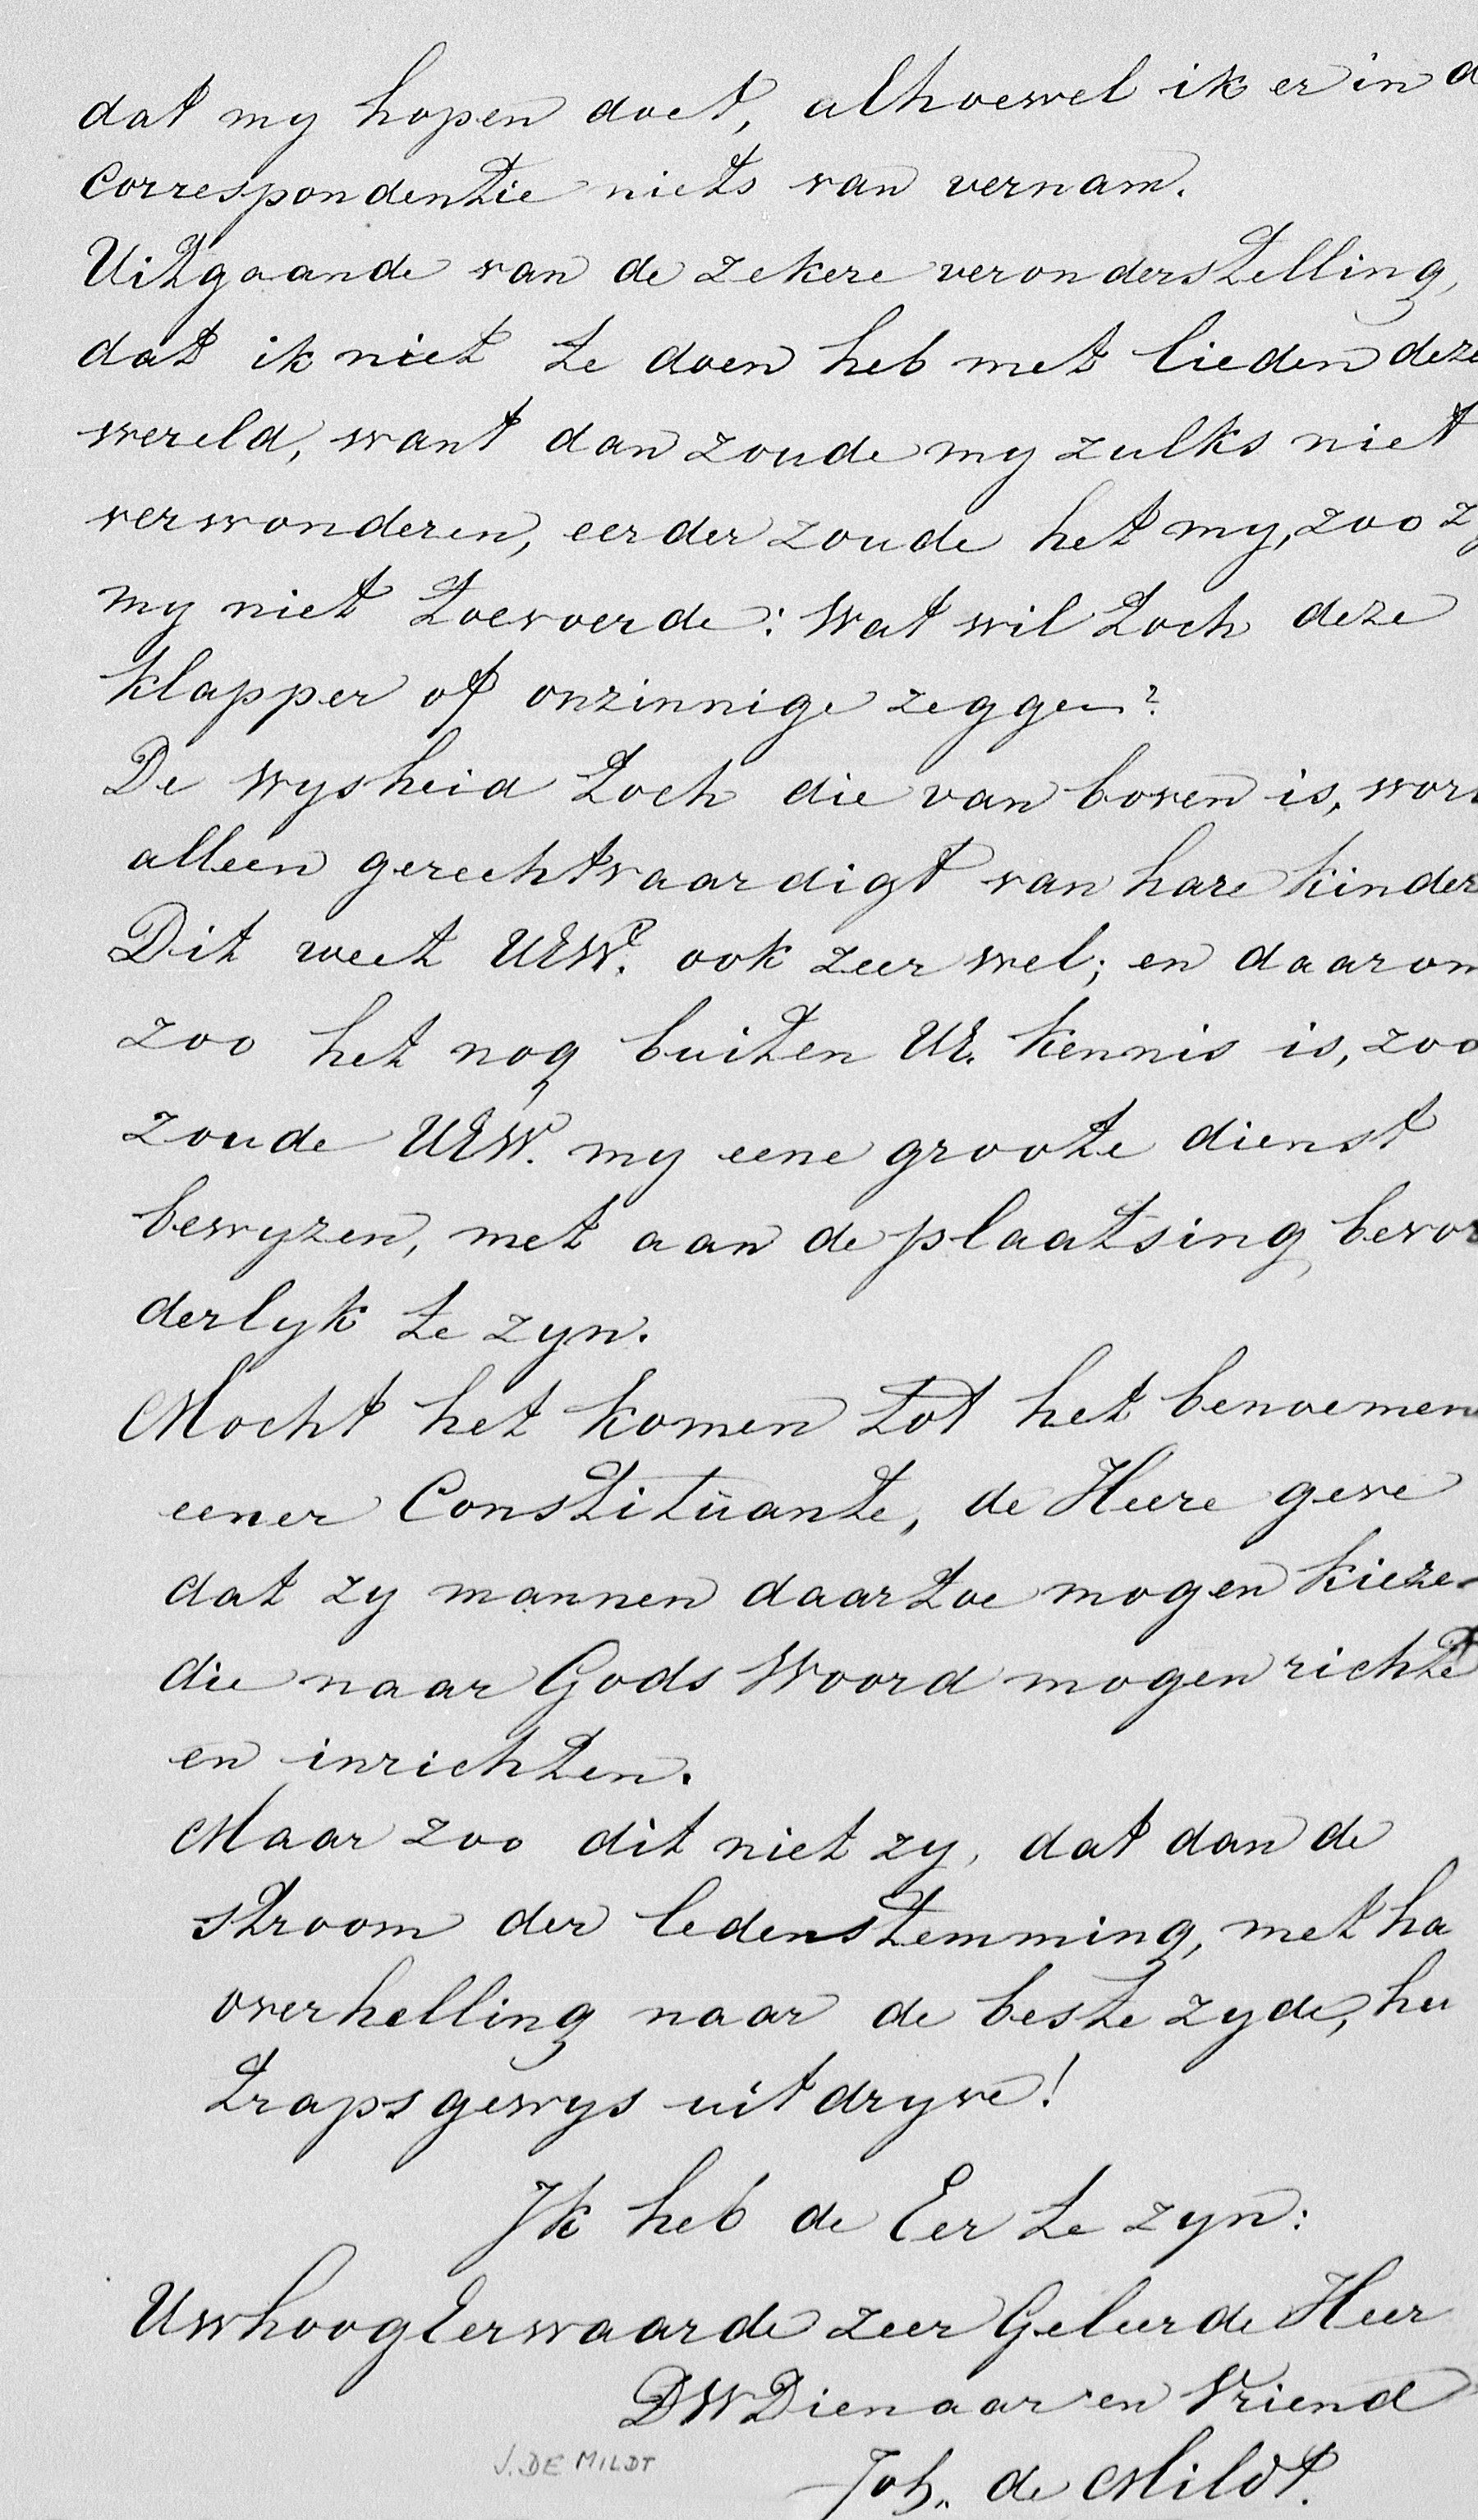 dat my hopen doet, alhoewel ik er in d
Correspondentie niets van vernam.
Uitgaande van de zekere veronderstelling,
dat ik niet te doen heb met lieden deze
wereld, want dan zoude my zulks niet
verwonderen, eerder zoude het my, zoo zy
my niet toevoerde: Wat wil toch deze
klapper of onzinnige zeggen?
De Wysheid toch die van boven is, word
alleen gerechtvaardigt van hare kinder
Dit weet UEW. ook zeer wel; en daarom
zoo het nog buiten UE. kennis is, zoo
zoude UEW. my eene groote dienst
bewyzen, met aan de plaatsing bevor
derlyk te zyn.
Mocht het komen tot het benoemen
eener Constitüante, de Heere geve
dat zy mannen daartoe mogen kieze
die naar Gods Woord mogen richte
en inrichten.
Maar zoo dit niet zy, dat dan de
stroom der ledenstemming, met ha
overhelling naar de beste zyde, hu
trapsgewys uitdryve!
Ik heb de Eer te zyn:
UwhoogEerwaarde zeer Geleerde Heer
DWDienaar en Vriend
Joh. de Mildt.
J. DE MILDT